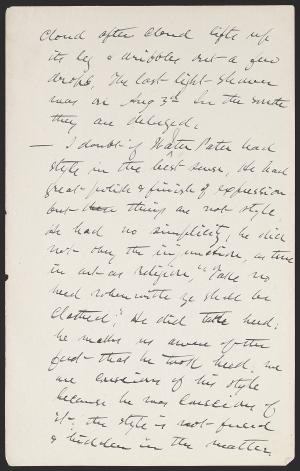 cloud after cloud lifts up
its leg & dribbles out a few
drops. The last light shower
was on Aug 3rd. In the south
they are deluged.
— I doubt if Walter Pater had
style in the best sense. He had
great polish & finish of expression
but these things are not style.
He had no simplicity; he did
not obey the injunction, as true
in art as religion, "Take no
heed wherewith ye shall be
clothed." He did take heed;
he makes us aware of the
fact that he took heed; we
are conscious of his style
because he was conscious of
it; the style is not fused
& hidden in the matter.